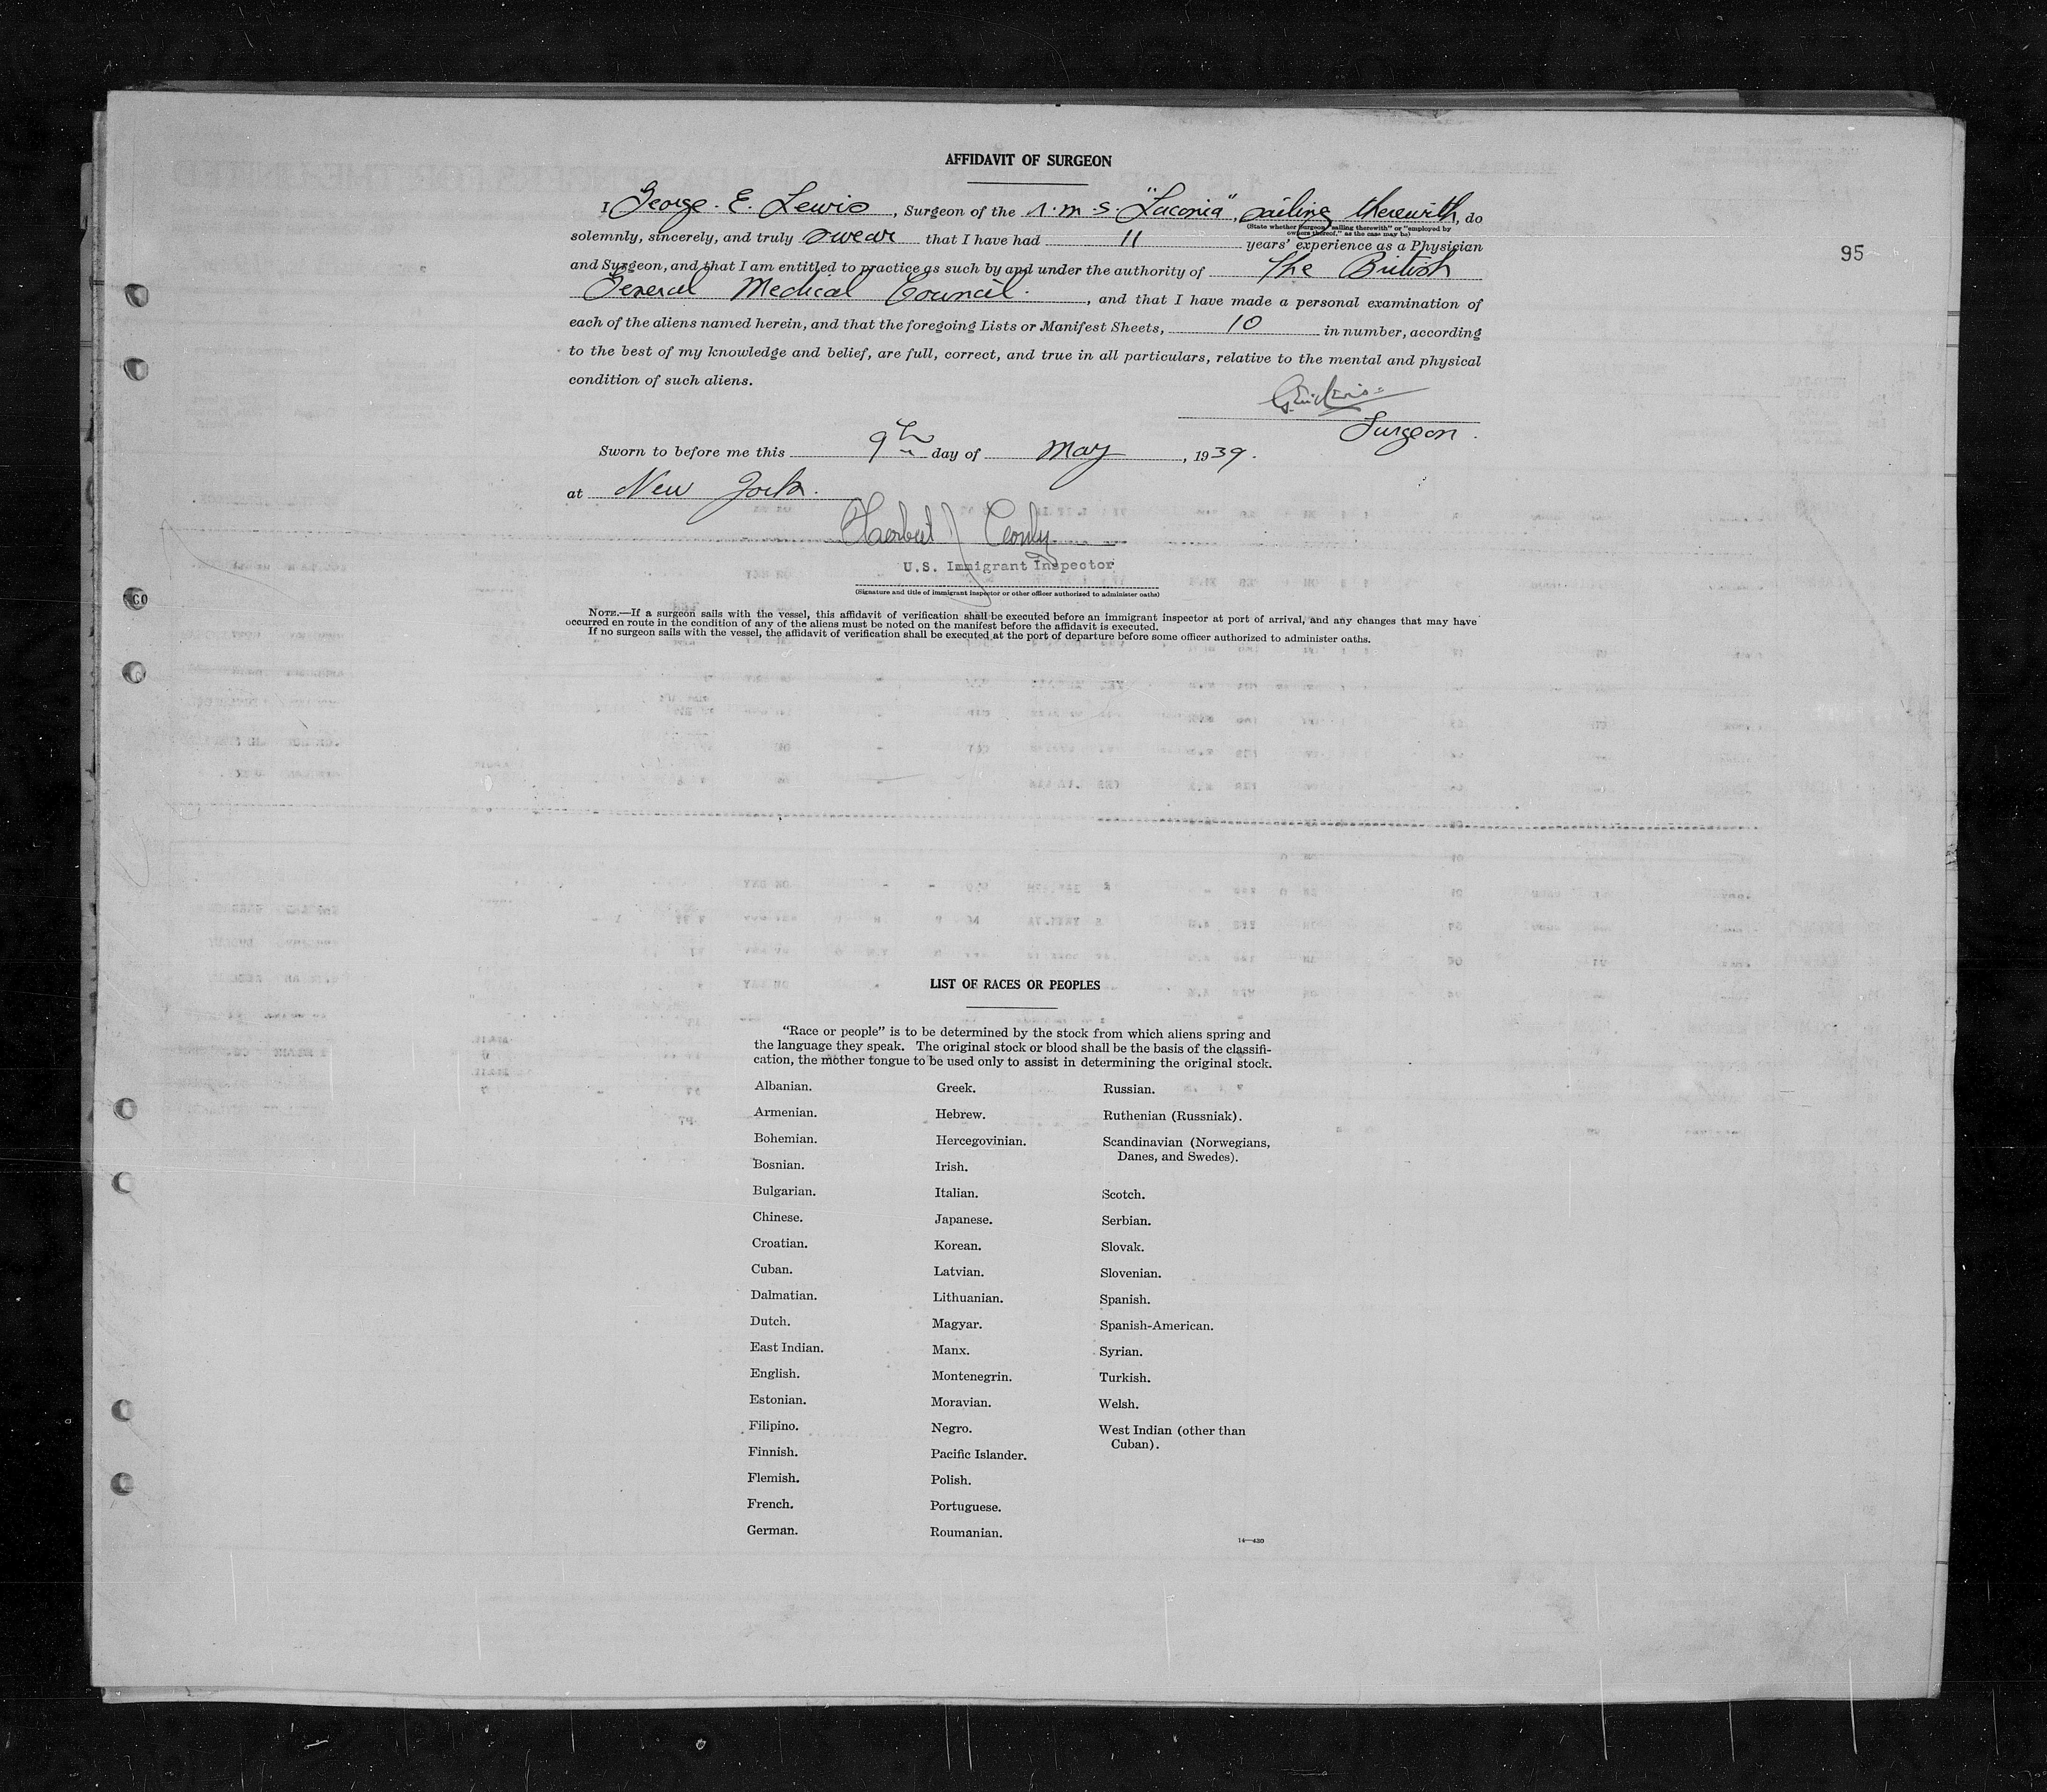 AFFIDAVIT OF SURGEON
I George. E. Lewis, Surgeon of the s.m.s. "Laconia", sailing therewith, do
(State whether Surgeon "sailing therewith" or "employed by
owners thereof," as the case may be)
solemnly, sincerely, and truly swear that I have had 11 years' experience as a Physician
and Surgeon, and that I am entitled to practice as such by and under the authority of The British
General Medical Council., and that I have made a personal examination of
each of the aliens named herein, and that the foregoing Lists or Manifest Sheets, 10 in number, according
to the best of my knowledge and belief, are full, correct, and true in all particulars, relative to the mental and physical
condition of such aliens.
Surgeon.
Sworn to before me this 9th day of May, 1939.
at New York.
Herbert J
U.S. Immigrant Inspector
(Signature and title of immigrant inspector or other officer authorized to administer oaths)
NOTE.—If a surgeon sails with the vessel, this affidavit of verification shall be executed before an immigrant inspector at port of arrival, and any changes that may have
occurred en route in the condition of any of the aliens must be noted on the manifest before the affidavit is executed.
If no surgeon sails with the vessel, the affidavit of verification shall be executed at the port of departure before some officer authorized to administer oaths.
95
LIST OF RACES OR PEOPLES
"Race or people" is to be determined by the stock from which aliens spring and
the language they speak. The original stock or blood shall be the basis of the classifi-
cation, the mother tongue to be used only to assist in determining the original stock.
Albanian.
Armenian.
Bohemian.
Bosnian.
Bulgarian.
Chinese.
Croatian.
Cuban.
Dalmatian.
Dutch.
East Indian.
English.
Estonian.
Filipino.
Finnish.
Flemish.
French.
German.
Greek.
Hebrew.
Hercegovinian.
Irish.
Italian.
Japanese.
Korean.
Latvian.
Lithuanian.
Magyar.
Manx.
Montenegrin.
Moravian.
Negro.
Pacific Islander.
Polish.
Portuguese.
Roumanian.
Russian.
Ruthenian (Russniak).
Scandinavian (Norwegians,
Danes, and Swedes).
Scotch.
Serbian.
Slovak.
Slovenian.
Spanish.
Spanish-American.
Syrian.
Turkish.
Welsh.
West Indian (other than
Cuban).
14—430